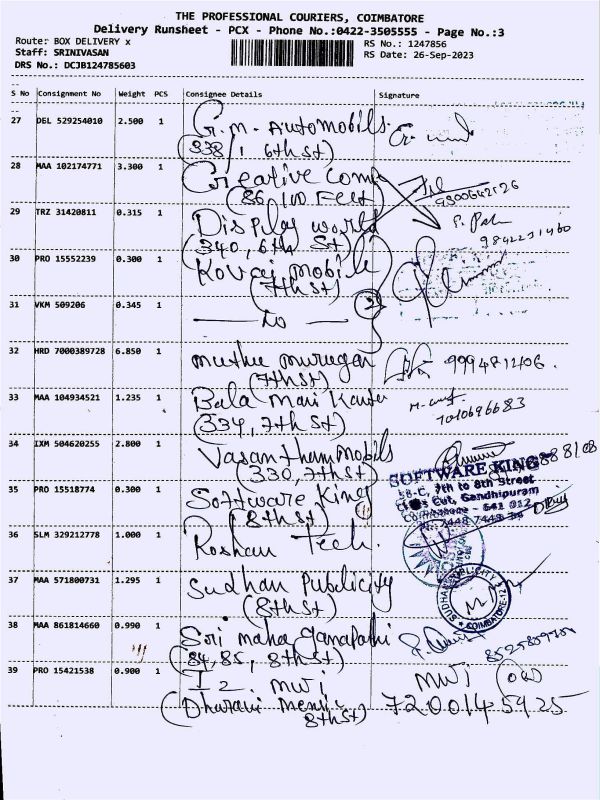 THE PROFESSIONAL COURIERS, COIMBATORE
Delivery Runsheet - PCX - Phone No.:0422-3505555 - Page No.:3
Route: BOX DELIVERY x
RS No.: 1247856
Staff: SRINIVASAN
RS Date: 26-Sep-2023
DRS No.: DCJB124785603
S No Consignment No Weight PCS Consignee Details Signature
27 DEL 529254010 2.500 1 G.m. Automobils.
(338/1 6th st)
28 MAA 102174771 3.300 1 Creative Comp
(86, 100 Feet)
29 TRZ 31420811 0.315 1 Display world
(340, 6th St)
9842231460
30 PRO 15552239 0.300 1 Kovai mobile
(7th st)
31 VKM 509206 0.345 1 — to — 2
32 HRD 7000389728 6.850 1 muthu murugan
(7th st)
33 MAA 104934521 1.235 1 Bala Mari
7010696683
(334, 7th St)
34 IXM 504620255 2.800 1 Vasantham mobils
(330, 7th st)
SOFTWARE KING
7th to 8th Street
Cut, Gandhipuram
35 PRO 15518774 0.300 1 Software King
(8th st)
36 SLM 329212778 1.000 1 Roshan Tech.
37 MAA 571800731 1.295 1 Sudhan Publicity
(8th st)
SUDHAN PUBLICITY
COIMBATORE-12
38 MAA 861814660 0.990 1 Sri maha Ganapathi
(84,85, 8th st)
39 PRO 15421538 0.900 1 I2 mwi
mwi
(Dharani
8th st)
7200145925